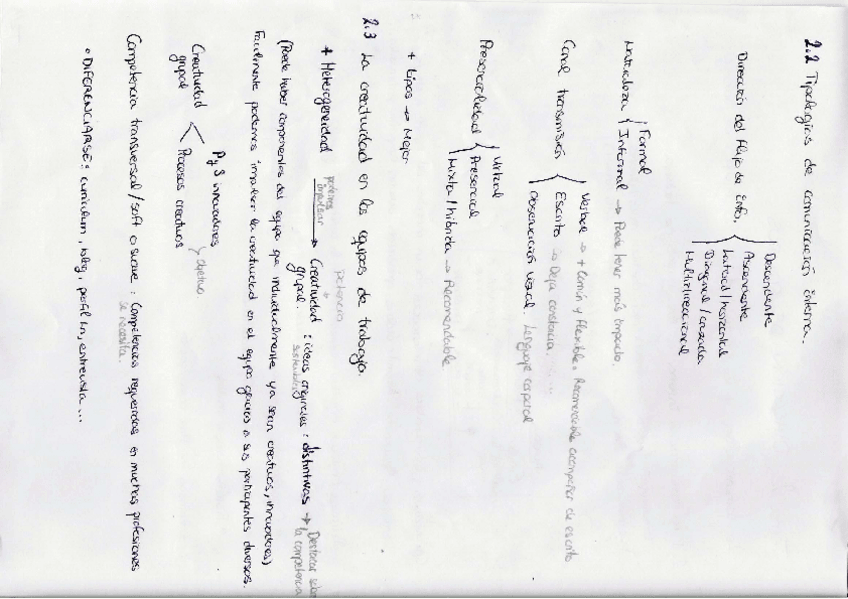 2.2 Tipologías de comunicación interna.
Dirección del flujo de info.
Descendente
Ascendente
Lateral/horizontal
Diagonal/cruzada
Multidireccional
Naturaleza
Formal
Informal → Puede tener más impacto.
Canal transmisión
Verbal → + Común y flexible. Recomendable acompañar de escrito
Escrita → Deja constancia
Observación visual. Lenguaje corporal
Presencialidad
Virtual
Presencial
Mixta/híbrida → Recomendable
+ tipos → Mejor
2.3 La creatividad en los equipos de trabajo.
potencia
+ Heterogeneidad → Creatividad grupal: ideas originales: distintivas → Destacar sobre la competencia
podemos impulsar
sostenibles
(Puede haber componentes del equipo que individualmente ya sean creativos, innovadores)
Fácilmente podemos impulsar la creatividad en el equipo gracias a sus participantes diversos.
Creatividad grupal
P y S innovadores
Procesos creativos
objetivo
Competencia transversal/soft o suave: Competencias requeridas en muchas profesiones
se necesita.
• DIFERENCIARSE: curriculum, blog, perfil in, entrevista...